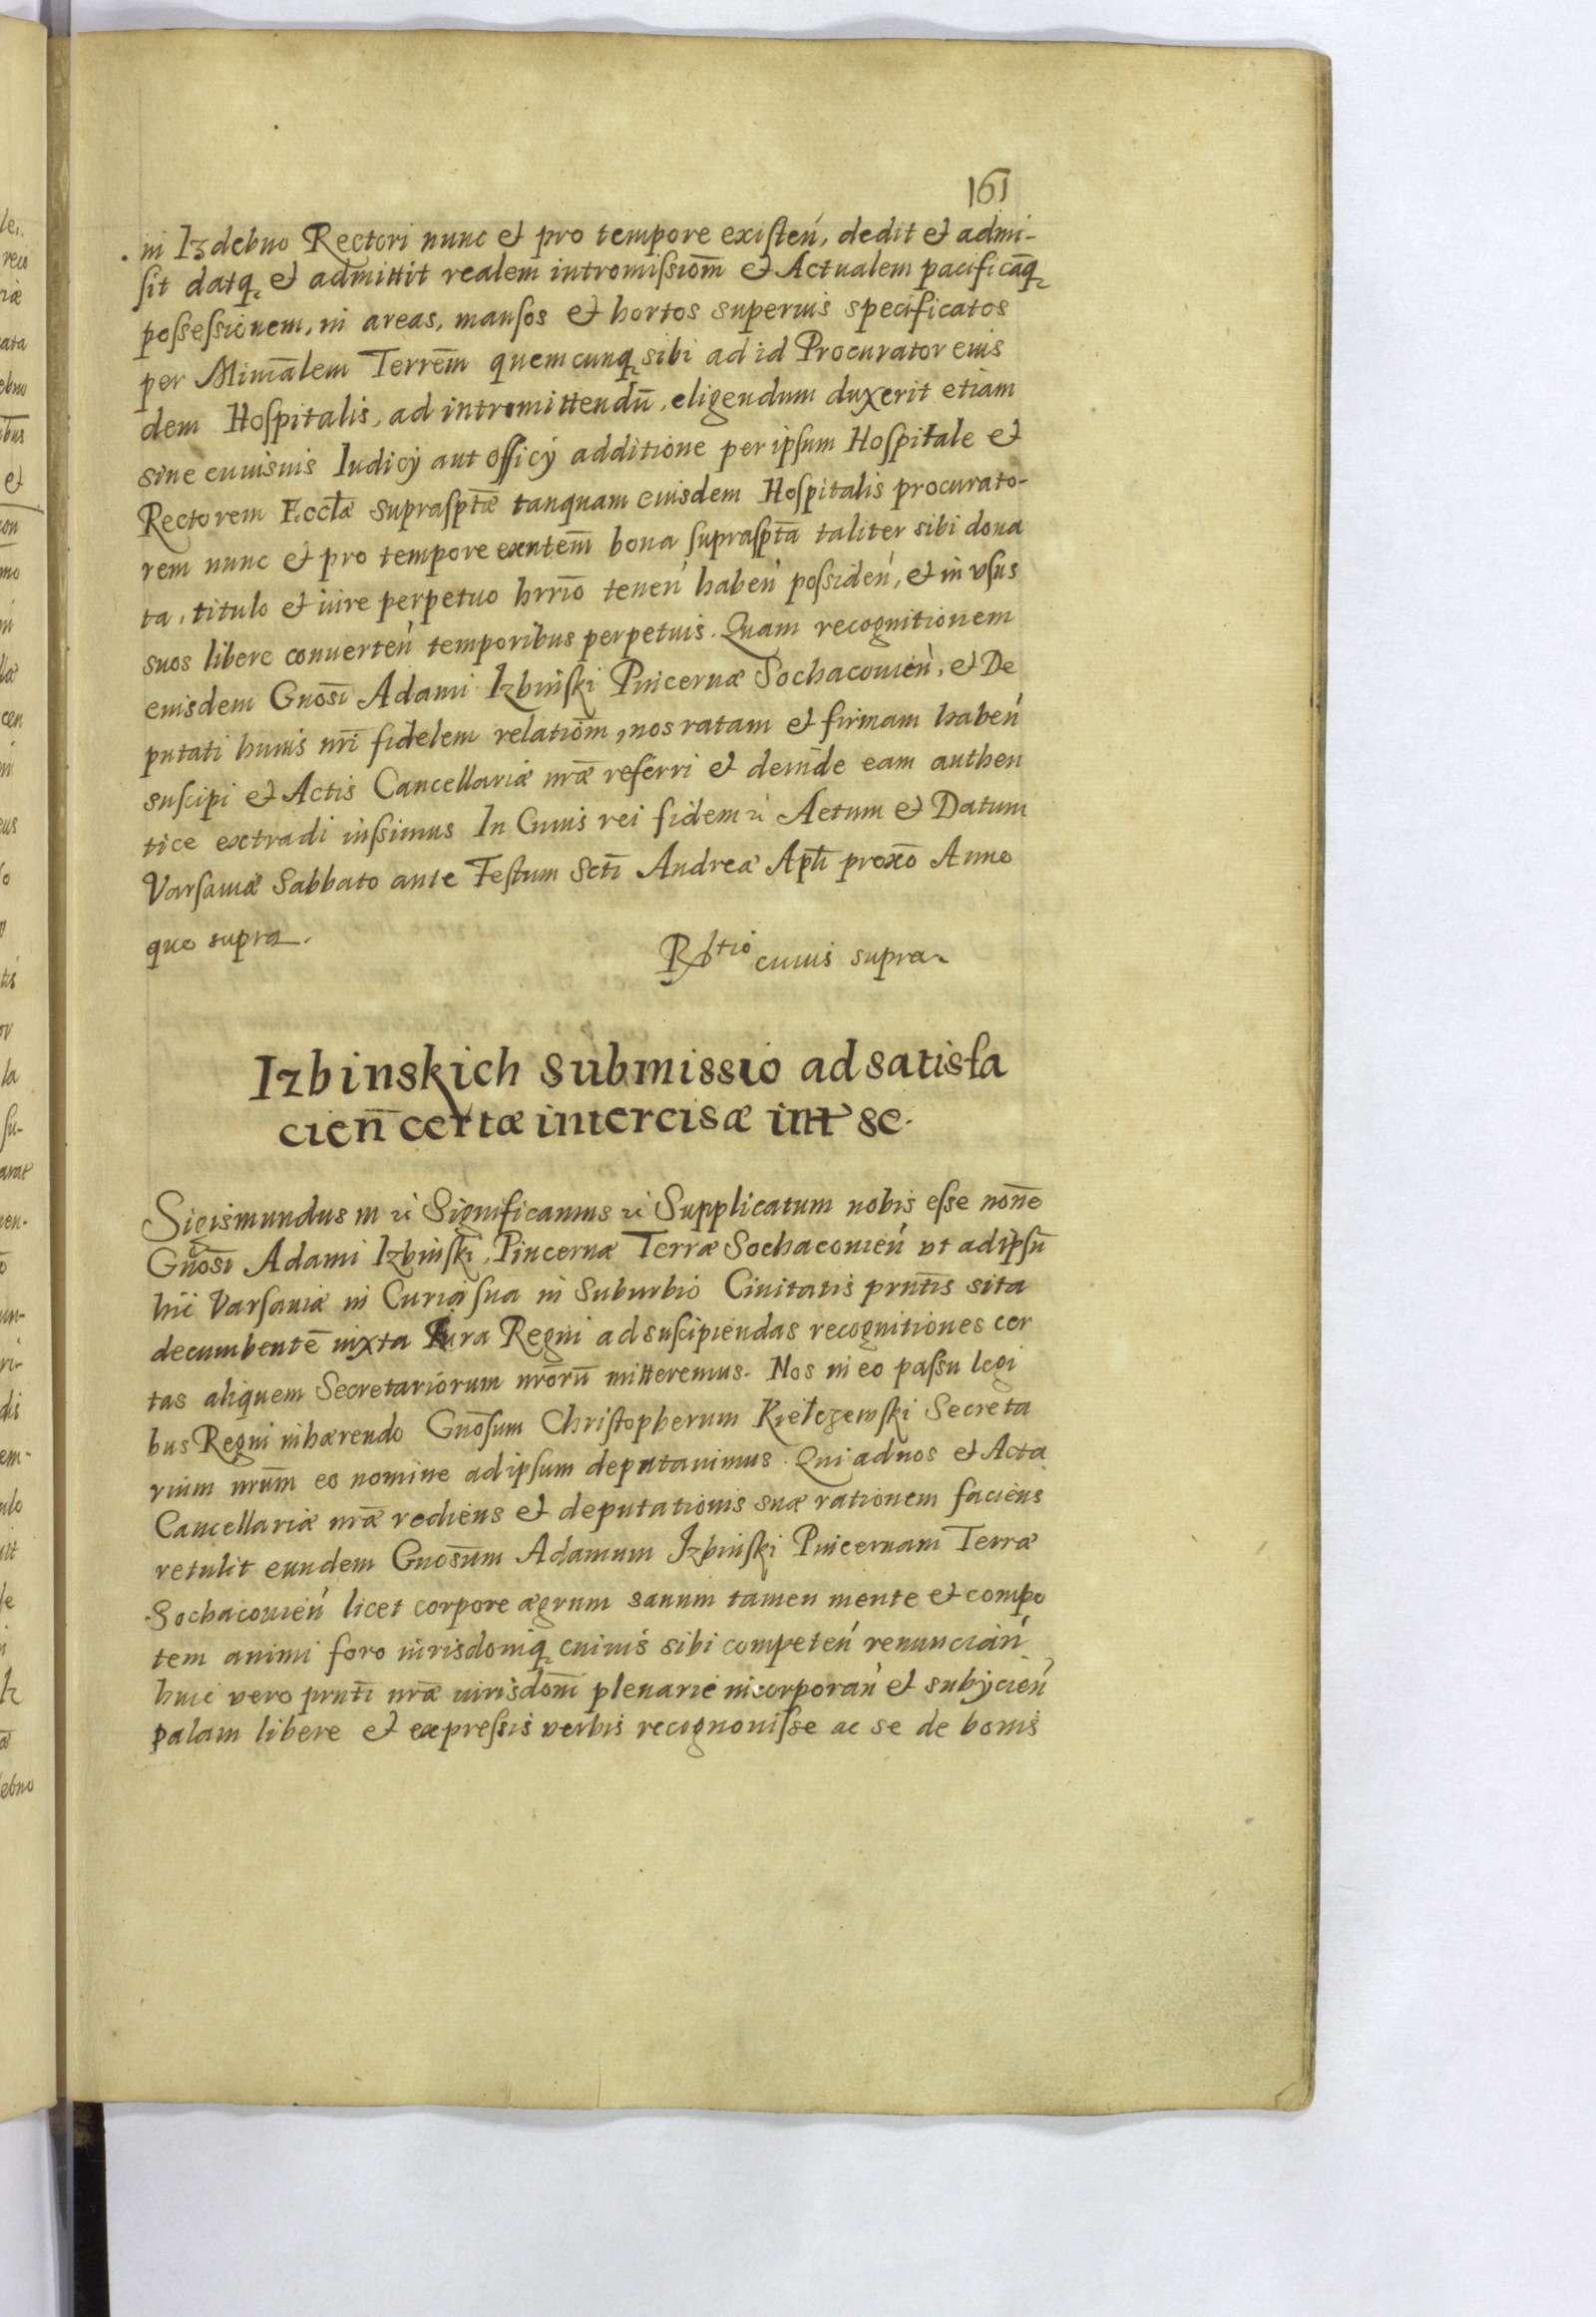 161
in Izdebno Rectori nunc et pro tempore existeń, dedit et admi-
sit datq₃ et admittit realem intromissiom̄ et Actualem pacificāq₃
possessionem, in areas, mansos et hortos superius specificatos
per Minīalem Terrēm quemcunq₃ sibi ad id Procurator eius
dem Hospitalis, ad intromittendū, eligendum duxerit etiam
sine cuiusuis Iudicÿ aut officÿ additione per ipsum Hospitale et
Rectorem Eccłæ suprasptǣ tanquam eiusdem Hospitalis procurato-
rem nunc et pro tempore exntem̄ bona suprasptā taliter sibi dona
ta, titulo et iure perpetuo hrrio̅ teneń habeń possideń, et in vsus
suos libere conuerteń temporibus perpetuis. Quam recognitionem
eiusdem Gnosī Adami Izbinski Pincernæ Sochacouień, et De
putati huius nrī fidelem relatiom̄, nos ratam et firmam habeń
suscipi et Actis Cancellariæ nrǣ referri et deinde eam authen
tice extradi iussimus In Cuius rei fidem &c Actum et Datum
Varsauiæ Sabbato ante Festum Sctī Andreæ Aplī proxō Anno
quo supra.
Rltio cuius supra
Izbinskich submissio ad satisfa
cień certæ intercisæ int se.
Sigismundus III &c Significamus &c Supplicatum nobis esse nonē
Gnosī Adami Izbinski, Pincernæ Terræ Sochacouień vt ad ipsū
hic Varsauiæ in Curia sua in Suburbio Ciuitatis prntīs sita
decumbentē iuxta Iura Regni ad suscipiendas recognitiones cer
tas aliquem Secretariorum nrorū mitteremus. Nos in eo passu legi
bus Regni inhærendo Gnosum Christopherum Kiełczewski Secreta
rium nrum̄ eo nomine ad ipsum deputauimus. Qui ad nos et Acta
Cancellariæ nrǣ rediens et deputationis suæ rationem faciens
retulit eundem Gnosum Adamum Izbinski Pincernam Terræ
Sochacouień licet corpore ægrum sanum tamen mente et compo
tem animi foro iurisdoniq₃ cuiuis sibi competeń renuncian̄
huic vero prntī nrǣ iurisdonī plenarie incorporań et subÿcień
palam libere et expressis verbis recognouisse ac se de bonis